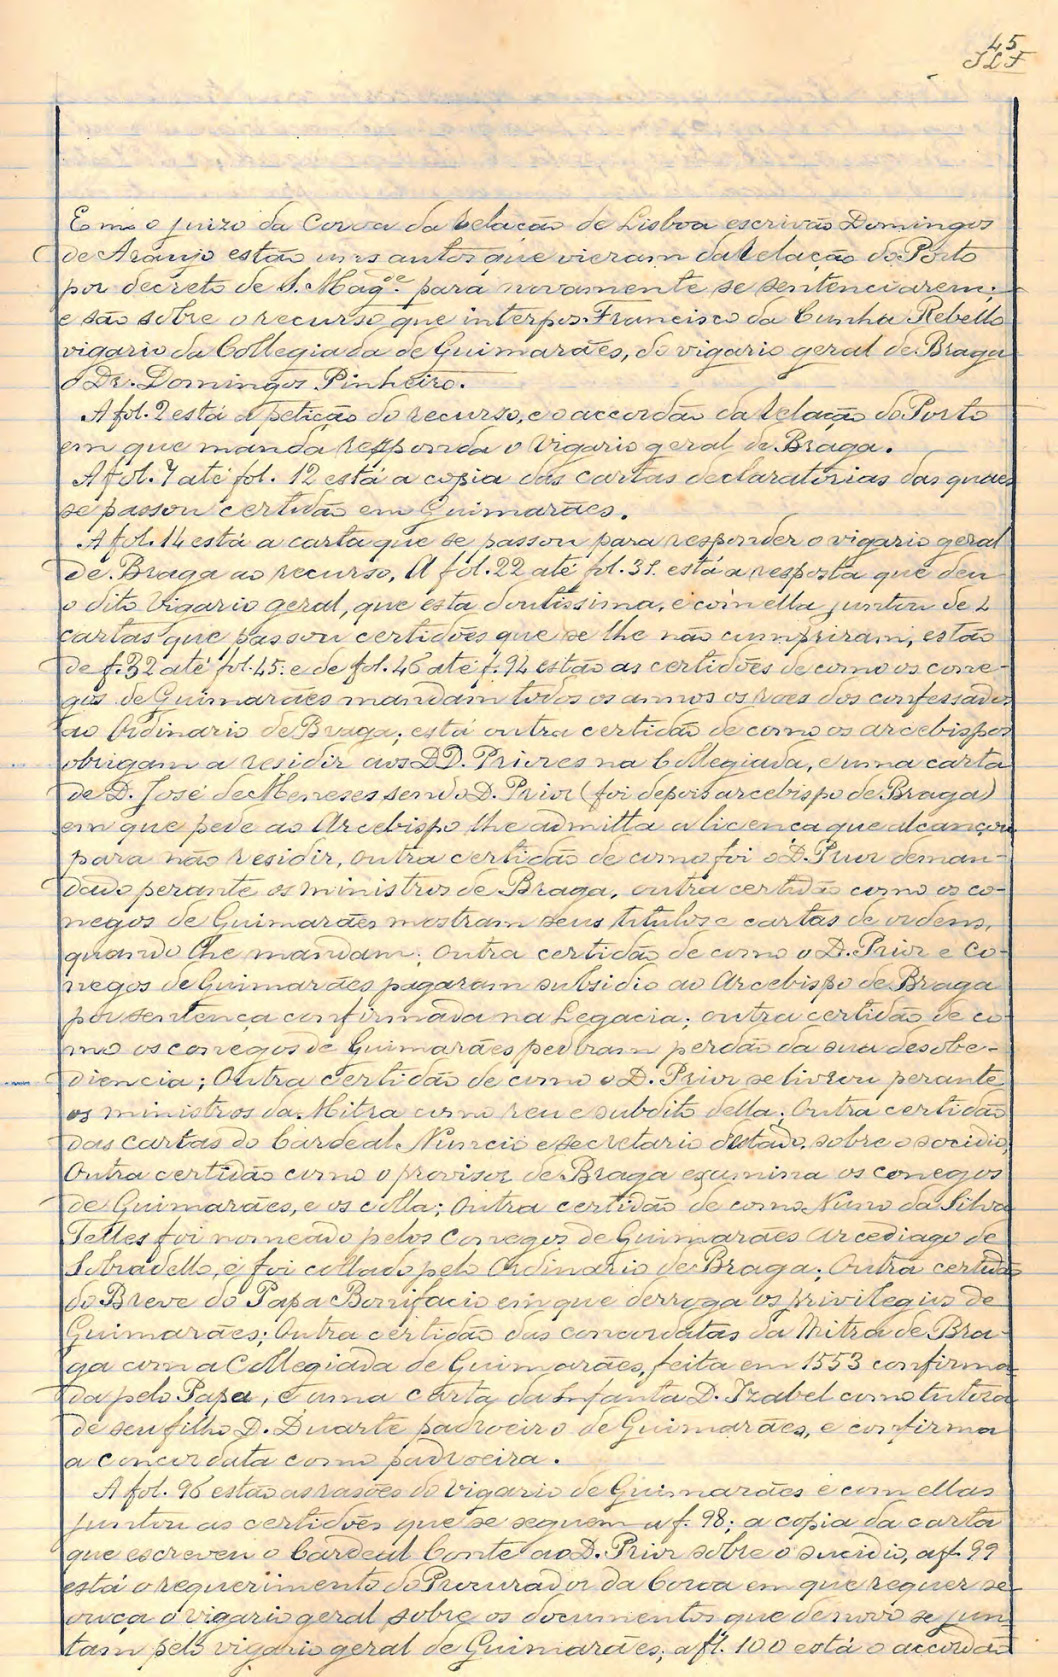 45
JLF
Em o juizo da Coroa da Relação de Lisboa escrivão Domingos
de Araujo estão uns autos que vieram da Relação do Porto
por decreto de S. Magde. para novamente se sentenciarem;
e são sobre o recurso que interpos Francisco da Cunha Rebello
vigario da Collegiada de Guimarães, do vigario geral de Braga
o Dr. Domingos Pinheiro.
A fol. 2 está a petição do recurso, e o accordão da Relação do Porto
em que manda responda o vigario geral de Braga.
A fol. 7 até fol. 12 está a copia das cartas declaratorias das quaes
se passou certidão em Guimarães.
A fol. 14 está a carta que se passou para responder o vigario geral
de Braga ao recurso. A fol. 22 até fol. 31 está a resposta que deu
o dito Vigario geral, que esta doutissima, e com ella juntou de 2
cartas que passou certidões que se lhe não cumpriram, estão
de f. 32 até fol. 45: e de fol. 46 até f. 92 estão as certidões de como os cone-
gos de Guimarães mandam todos os annos os roes dos confessados
ao Ordinario de Braga; está outra certidão de como os arcebispos
obrigam a residir aos DD. Priores na Collegiada, e uma carta
de D. José de Meneses sendo D. Prior (foi depois arcebispo de Braga)
em que pede ao Arcebispo lhe admitta a licença que alcançou
para não residir, outra certidão de como foi o D. Prior deman-
dado perante os ministros de Braga, outra certidão como os co-
negos de Guimarães mostram seus titulos e cartas de ordens,
quando lhe mandam; outra certidão de como o D. Prior e Co-
negos de Guimarães pagaram subsidio ao Arcebispo de Braga
por sentença confirmada na Legacia; outra certidão de co-
mo os conegos de Guimarães pediram perdão da sua desobe-
diencia; Outra certidão de como o D. Prior se livrou perante
os ministros da Mitra como reu e subdito della; Outra certidão
das cartas do Cardeal Nuncio e secretario d'estado, sobre o socidio;
Outra certidão como o provisor de Braga examina os conegos
de Guimarães, e os colla; Outra certidão de como Nuno da Silva
Telles foi nomeado pelos Conegos de Guimarães Arcediago de
Sobradello, e foi collado pelo Ordinario de Braga; Outra certidão
do Breve do Papa Bonifacio em que derroga os privilegios de
Guimarães; Outra certidão das concordatas da Mitra de Bra-
ga com a Collegiada de Guimarães, feita em 1553 confirma-
da pelo Papa, e uma carta da Infanta D. Izabel como tutora
de seu filho D. Duarte padroeiro de Guimarães, e confirma
a concordata como padroeira.
A fol. 96 estão as rasões do vigario de Guimarães e com ellas
juntou as certidões que se seguem a f. 98; a copia da carta
que escreveu o Cardeal Conte ao D. Prior sobre o sucidio, a f. 99
está o requerimento do Procurador da Coroa em que requer se
ouça o vigario geral sobre os documentos que de novo se jun
tam pelo vigario geral de Guimarães; a fl. 100 está o accordão